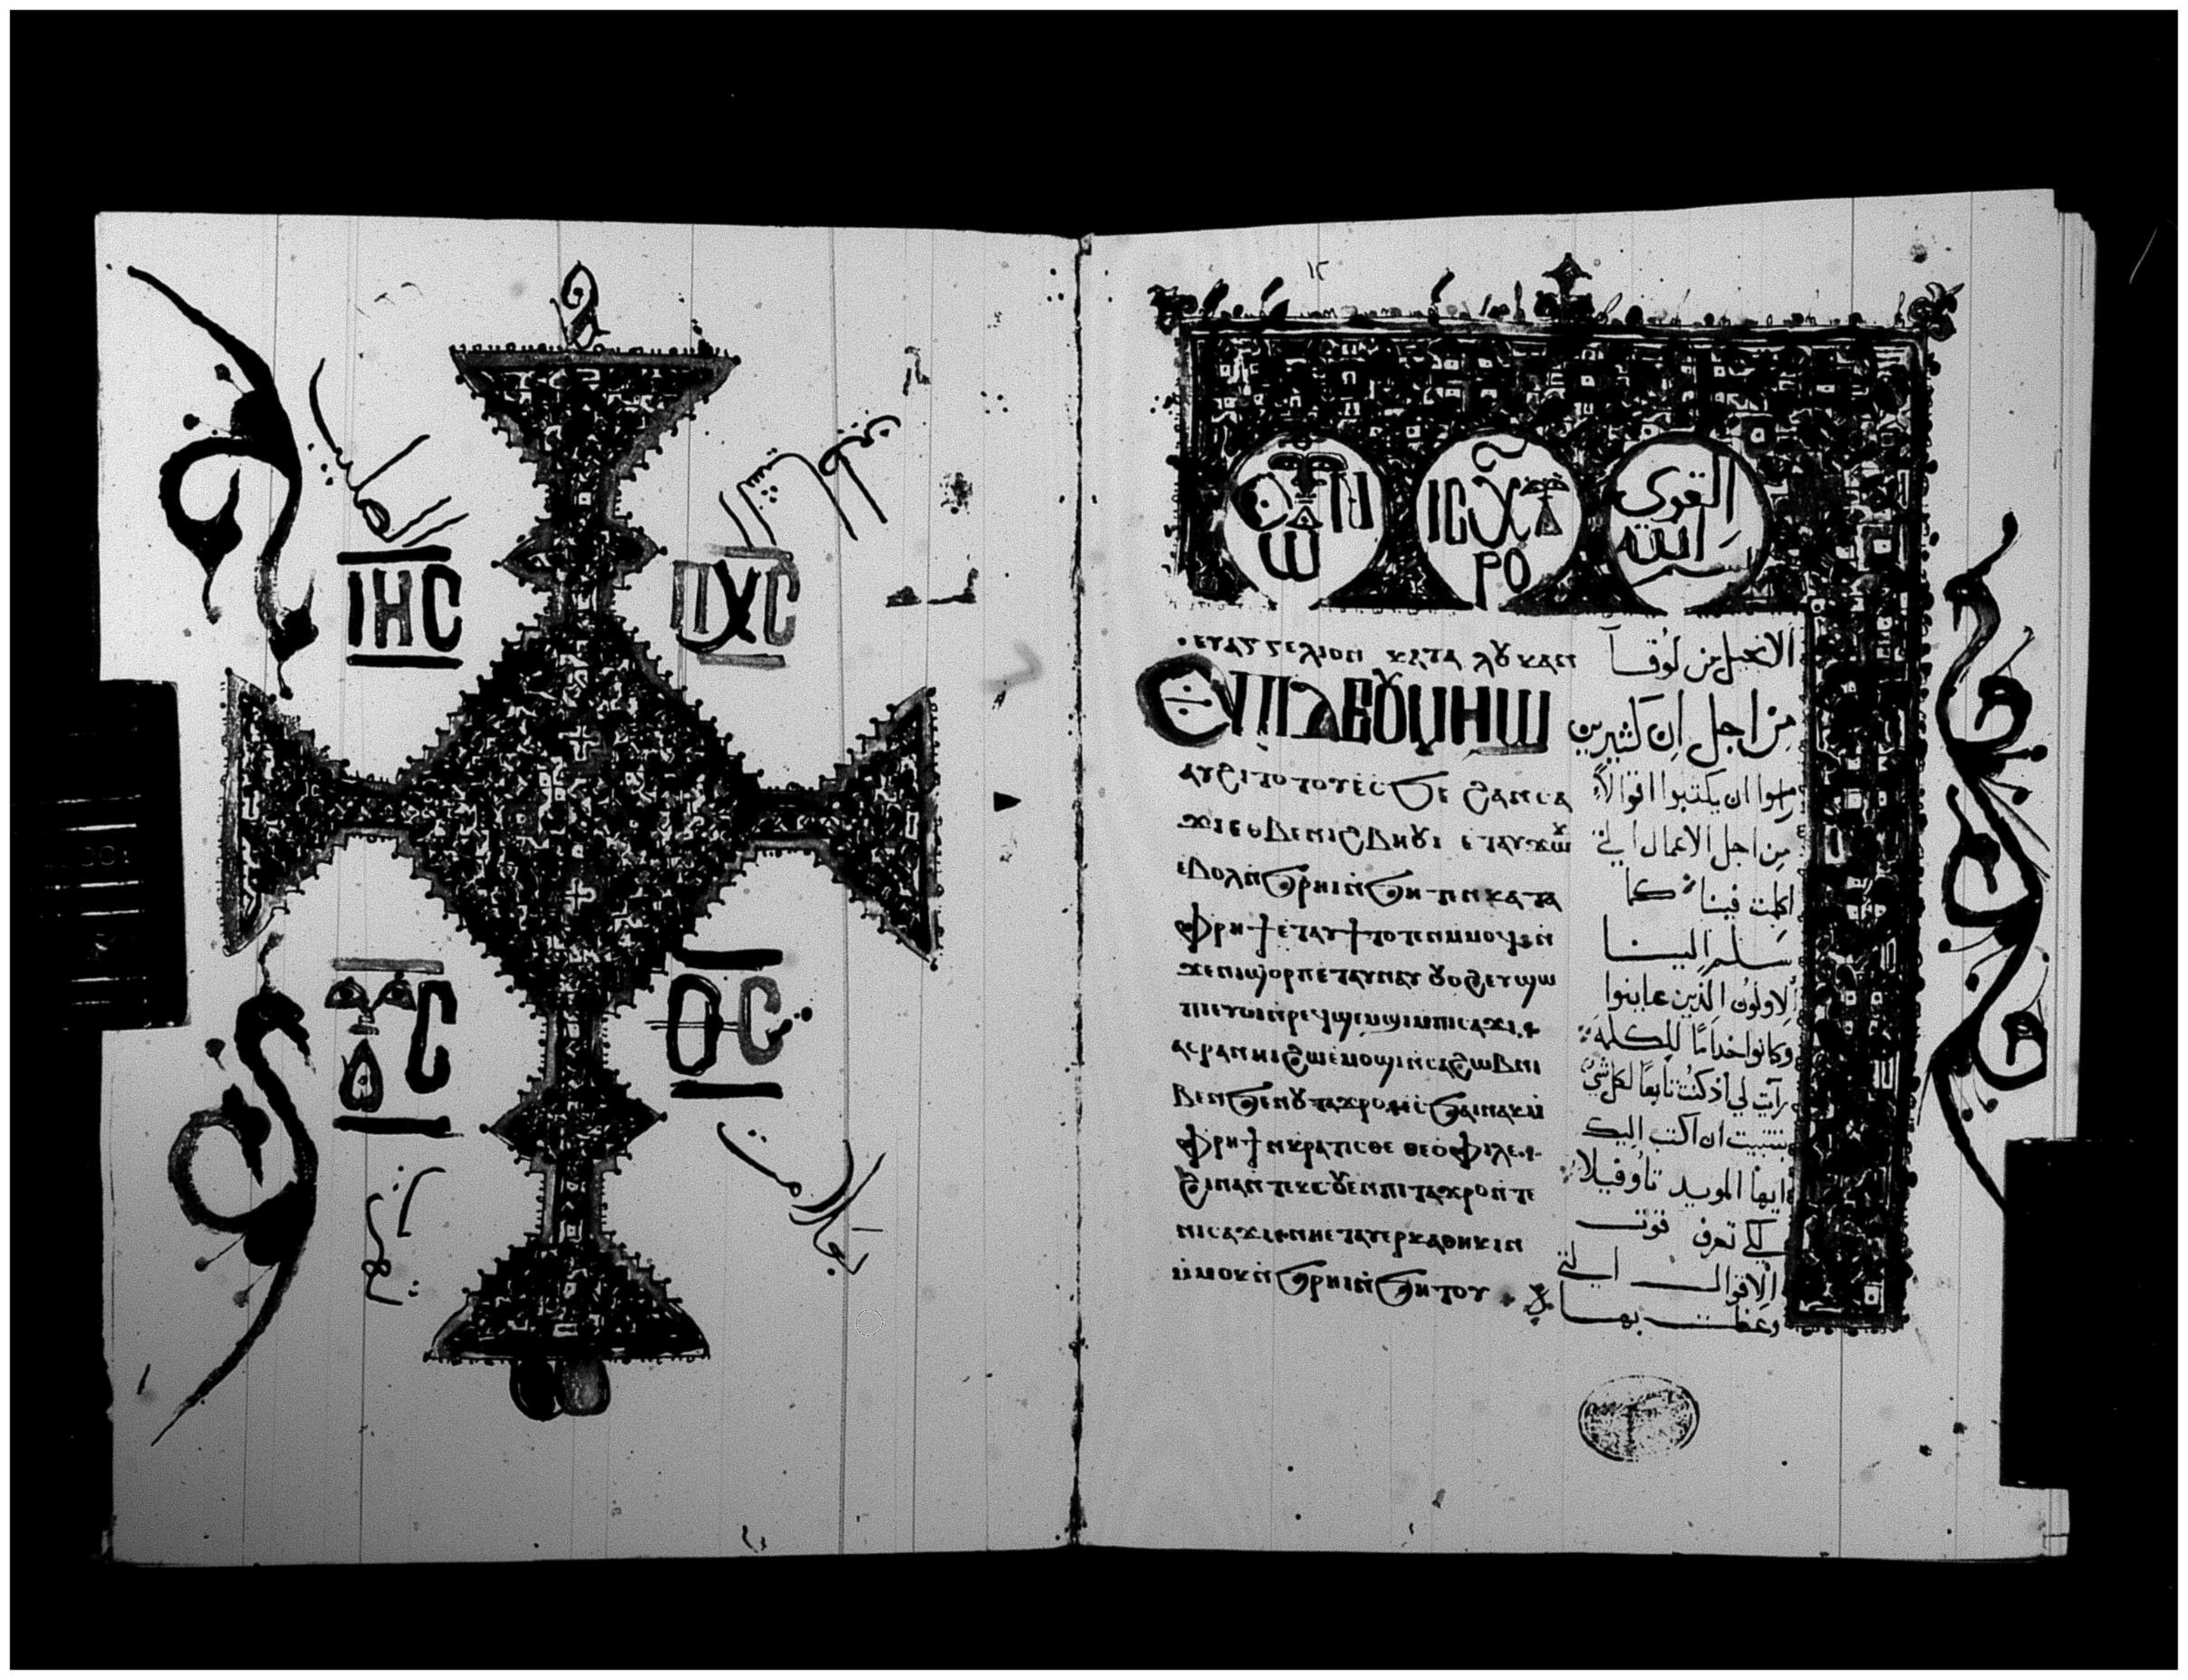 ⲒⲎⲤ ⲠⲬⲤ
ⲨⲤ ⲐⲤ
ⲒⲤⲬⲨ
ⲢⲞ
القوى
الله
بسم
ⲉⲩⲁⲅⲅⲉⲗⲓⲟⲛ ⲕⲁⲧⲁ ⲗⲟⲩⲕⲁⲛ
ⲉⲡⲓⲇⲏ ⲟⲩⲙⲏϣ
ⲁⲩϩⲓⲧⲟⲧⲟⲩ ⲉⲥϧⲉ ϩⲁⲛⲥⲁ
ϫⲓ ⲉⲑⲃⲉ ⲛⲓϩⲃⲏⲟⲩⲓ ⲉⲧⲁⲩϫⲱⲕ
ⲉⲃⲟⲗ ⲛ̀ϧⲣⲏⲓ ⲛ̀ϧⲏⲧⲉⲛ ⲕⲁⲧⲁ
ⲫⲣⲏϯ ⲉⲧⲁⲩϯ ⲧⲟⲧⲉⲛ ⲙ̀ⲙⲟϥ ⲛ̀
ϫⲉ ⲛⲓϣⲟⲣⲡ ⲉⲧⲁⲩⲛⲁⲩ ⲟⲩⲟϩ ⲉⲩϣⲱ
ⲡⲓ ⲉⲩⲟⲓ ⲛ̀ⲣⲉϥϣⲉⲙϣⲓ ⲙ̀ⲡⲓⲥⲁϫⲓ
ⲁⲥⲣⲁⲛⲏⲓ ϩⲱ ⲉⲙⲟϣⲓ ⲛ̀ⲥⲁ ϩⲱⲃ ⲛⲓ
ⲃⲉⲛ ϧⲉⲛ ⲟⲩⲧⲁϫⲣⲟ ⲉⲥϧⲁⲓ ⲛⲁⲕ ⲙ̀
ⲫⲣⲏϯ ⲕⲣⲁⲧⲓⲥⲑⲉ ⲑⲉⲟⲫⲓⲗⲉ
ϩⲓⲛⲁ ⲛ̀ⲧⲉⲕⲥⲟⲩⲉⲛ ⲡⲓⲧⲁϫⲣⲟ ⲛ̀ⲧⲉ
ⲛⲓⲥⲁϫⲓ ⲛⲏ ⲉⲧⲁⲩⲉⲣⲕⲁⲑⲏⲕⲓⲛ
ⲙ̀ⲙⲟⲕ ⲛ̀ϧⲣⲏⲓ ⲛ̀ϧⲏⲧⲟⲩ
الانجيل من لوقا
من اجل ان كثيرين
راموا ان يكتبوا اقوالا
من اجل الاعمال التي
اكملت فينا كما
سلم الينا
الاولون الذين عاينوا
وكانوا خداما للكلمة
رأيت لي اذ كنت تابعا لكل شي
بتثبيت ان اكتب اليك
ايها المويد تاوفيلا
لكي تعرف قوت
الاقوال التي
وعظت بها